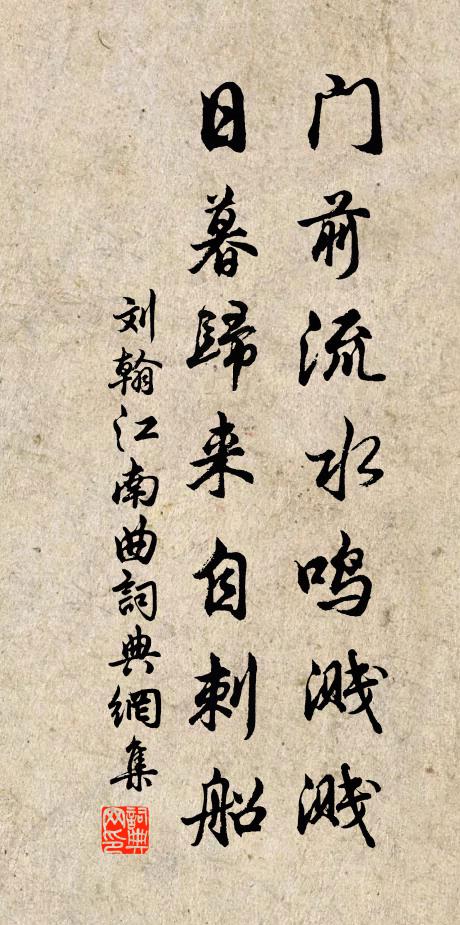 门前流水鸣溅溅
日暮歸来自刺船
刘翰江南曲詞典網集
詞典网印